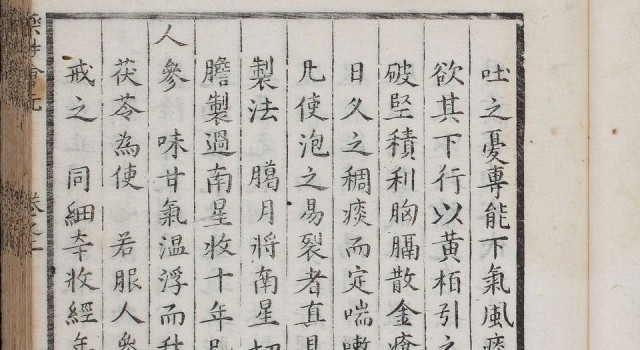 吐之憂專能下氣風痰
欲其下行以黃栢引之
破堅積利胸膈散金瘡
日久之稠痰而定喘嗽
凡使泡之易裂者真
製法 臈月將南星切
膽製過南星收十年
人參 味甘氣溫浮而
茯苓為使 若服人參
戒之 同細辛收經年
卷之二